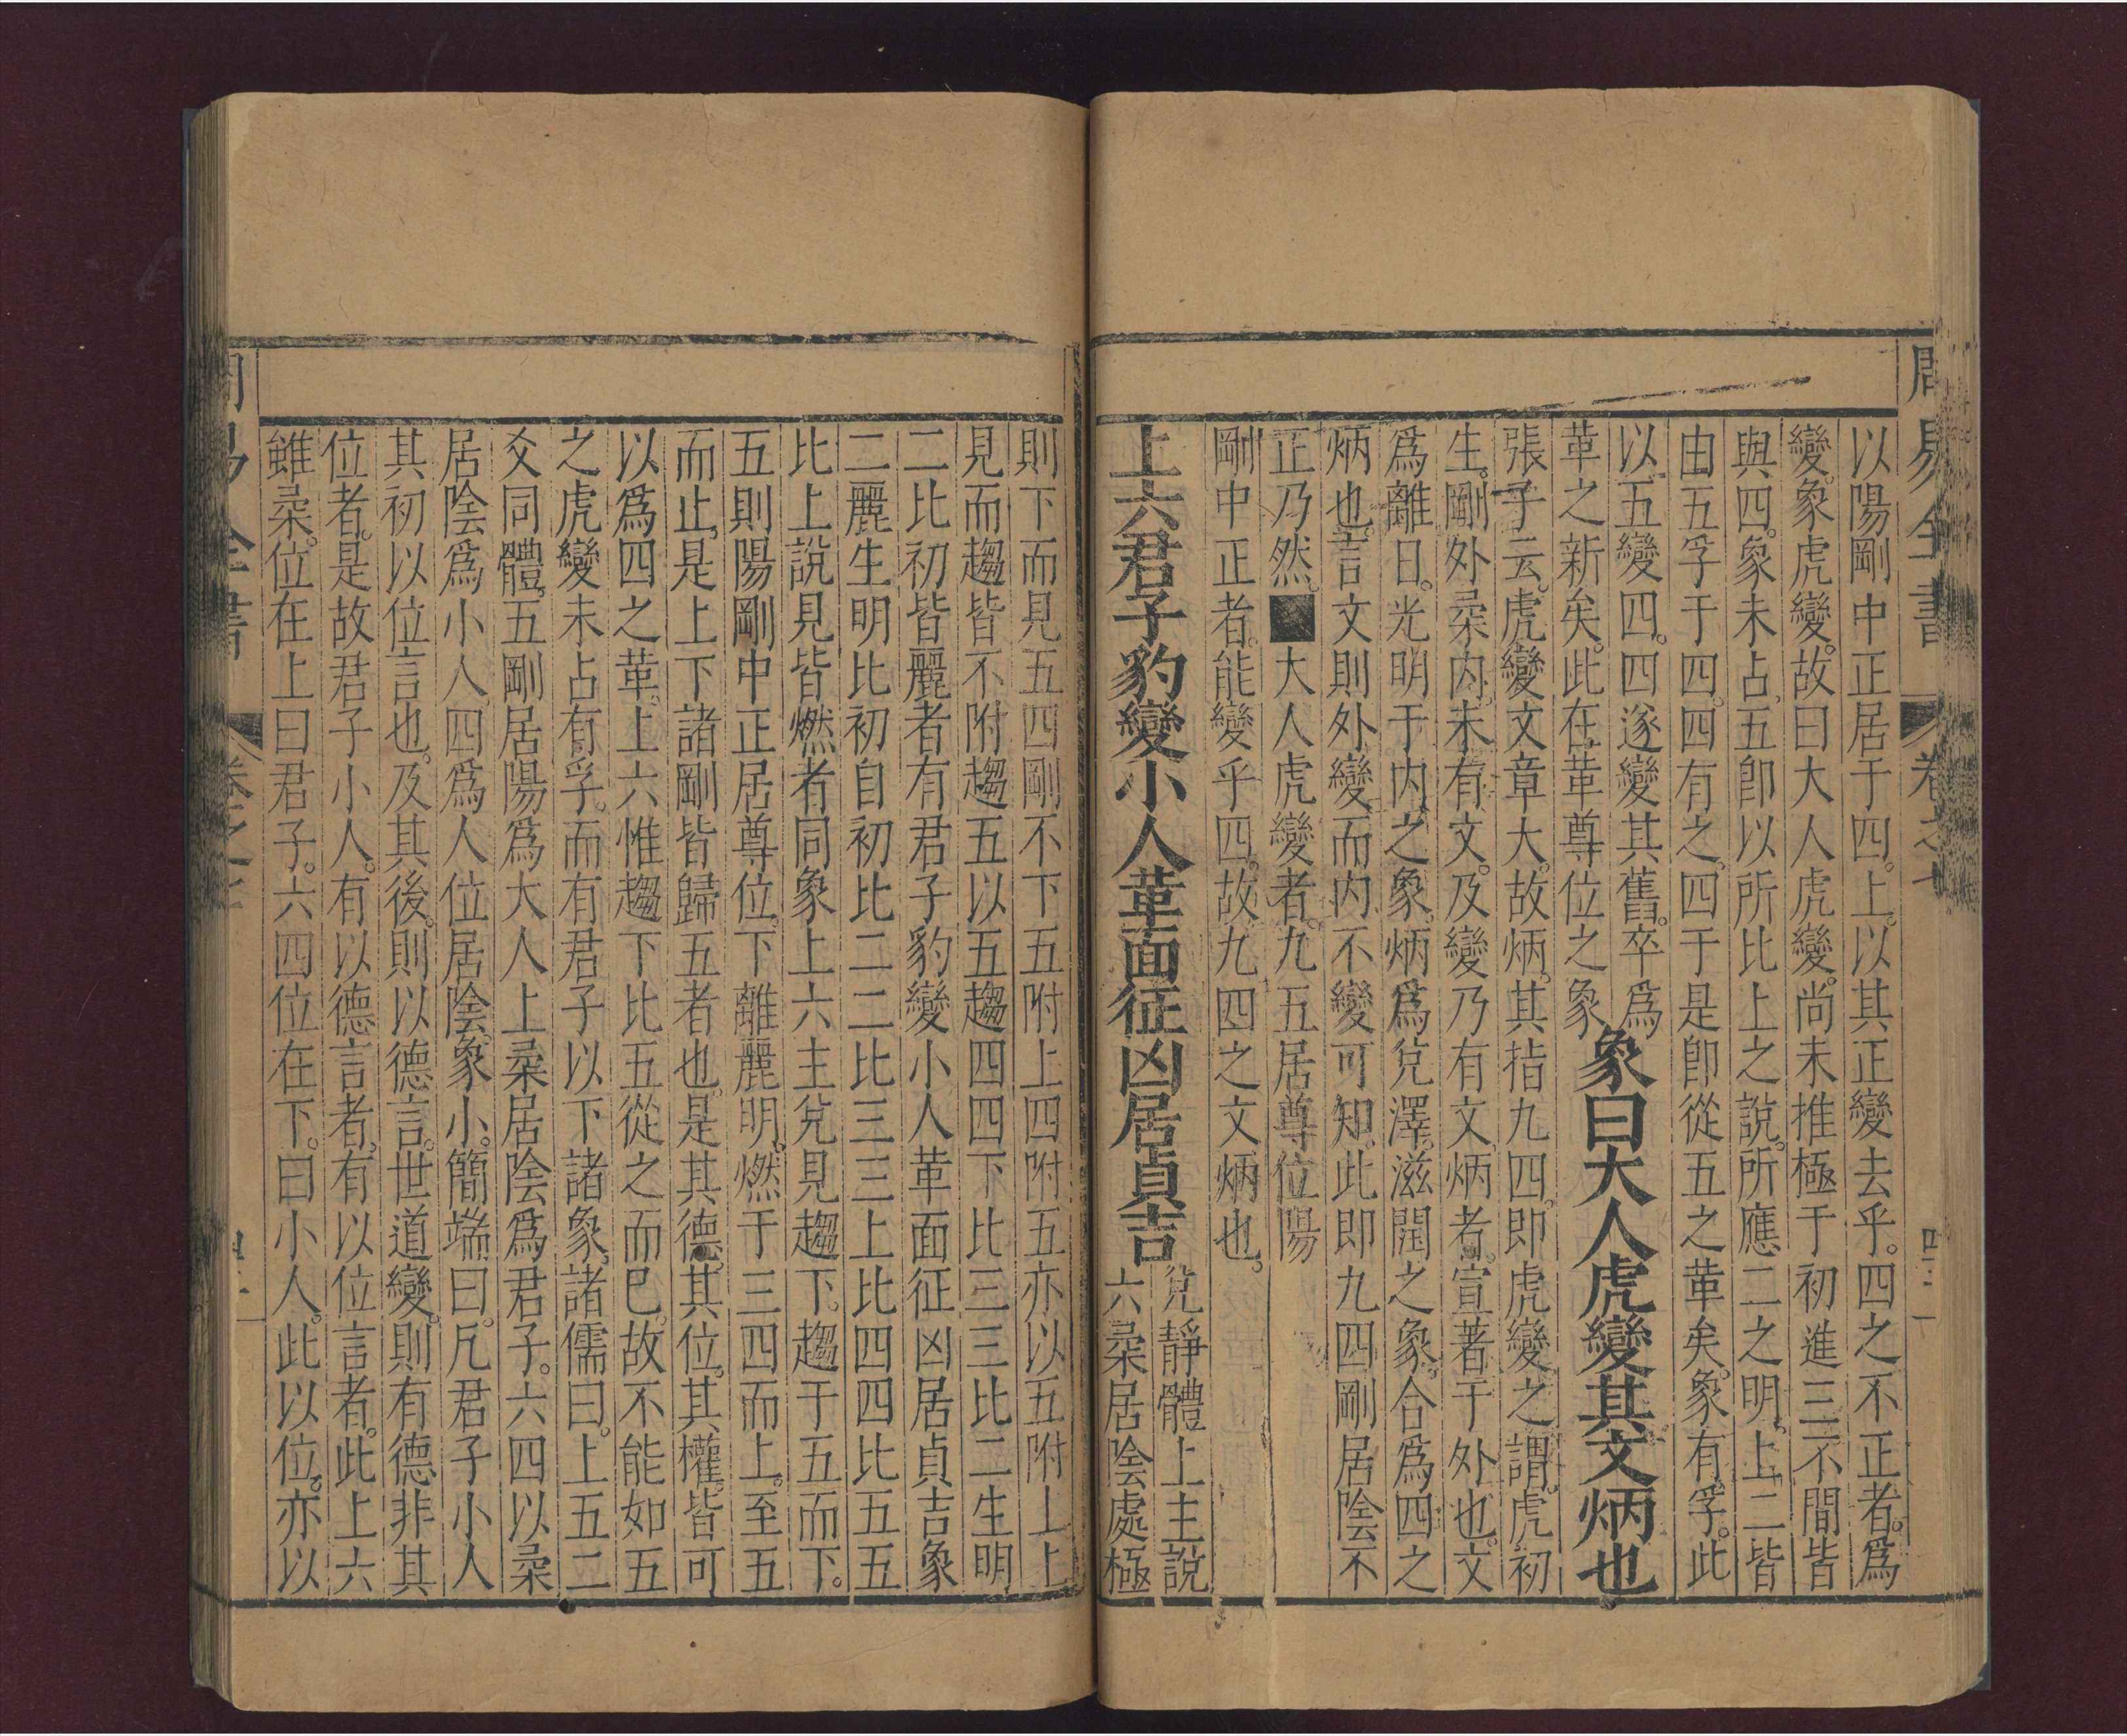 周易全書 卷之七
以陽剛中正居于四上以其正變去乎四之不正者爲
變象虎變故曰大人虎變尚未推極于初進三不間皆
與四象未占五卽以所比上之說所應二之明上二皆
由五孚于四四有之四于是卽從五之革矣象有孚此
以五變四四遂變其舊卒爲
革之新矣此在革尊位之象
象曰大人虎變其文炳也
張子云虎變文章大故炳其指九四卽虎變之謂虎初
生剛外柔內未有文及變乃有文炳者宣著于外也文
爲離日光明于內之象炳爲兌澤滋潤之象合爲四之
炳也言文則外變而內不變可知此卽九四剛居陰不
正乃然■大人虎變者九五居尊位陽
剛中正者能變乎四故九四之文炳也
上六君子豹變小人革面征凶居貞吉
兌靜體上主說
六柔居陰處極
則下而見五四剛不下五附上四附五亦以五附上上
見而趨皆不附趨五以五趨四四下比三三比二生明
二比初皆麗者有君子豹變小人革面征凶居貞吉象
二麗生明比初自初比二二比三三上比四四比五五
比上說見皆燃者同象上六主兌見趨下趨于五而下
五則陽剛中正居尊位下離麗明燃于三四而上至五
而止是上下諸剛皆歸五者也是其德其位其權皆可
以爲四之革上六惟趨下比五從之而巳故不能如五
之虎變未占有孚而有君子以下諸象諸儒曰上五二
爻同體五剛居陽爲大人上柔居陰爲君子六四以柔
居陰爲小人四爲人位居陰象小簡端曰凡君子小人
其初以位言也及其後則以德言世道變則有德非其
位者是故君子小人有以德言者有以位言者此上六
雖柔位在上曰君子六四位在下曰小人此以位亦以